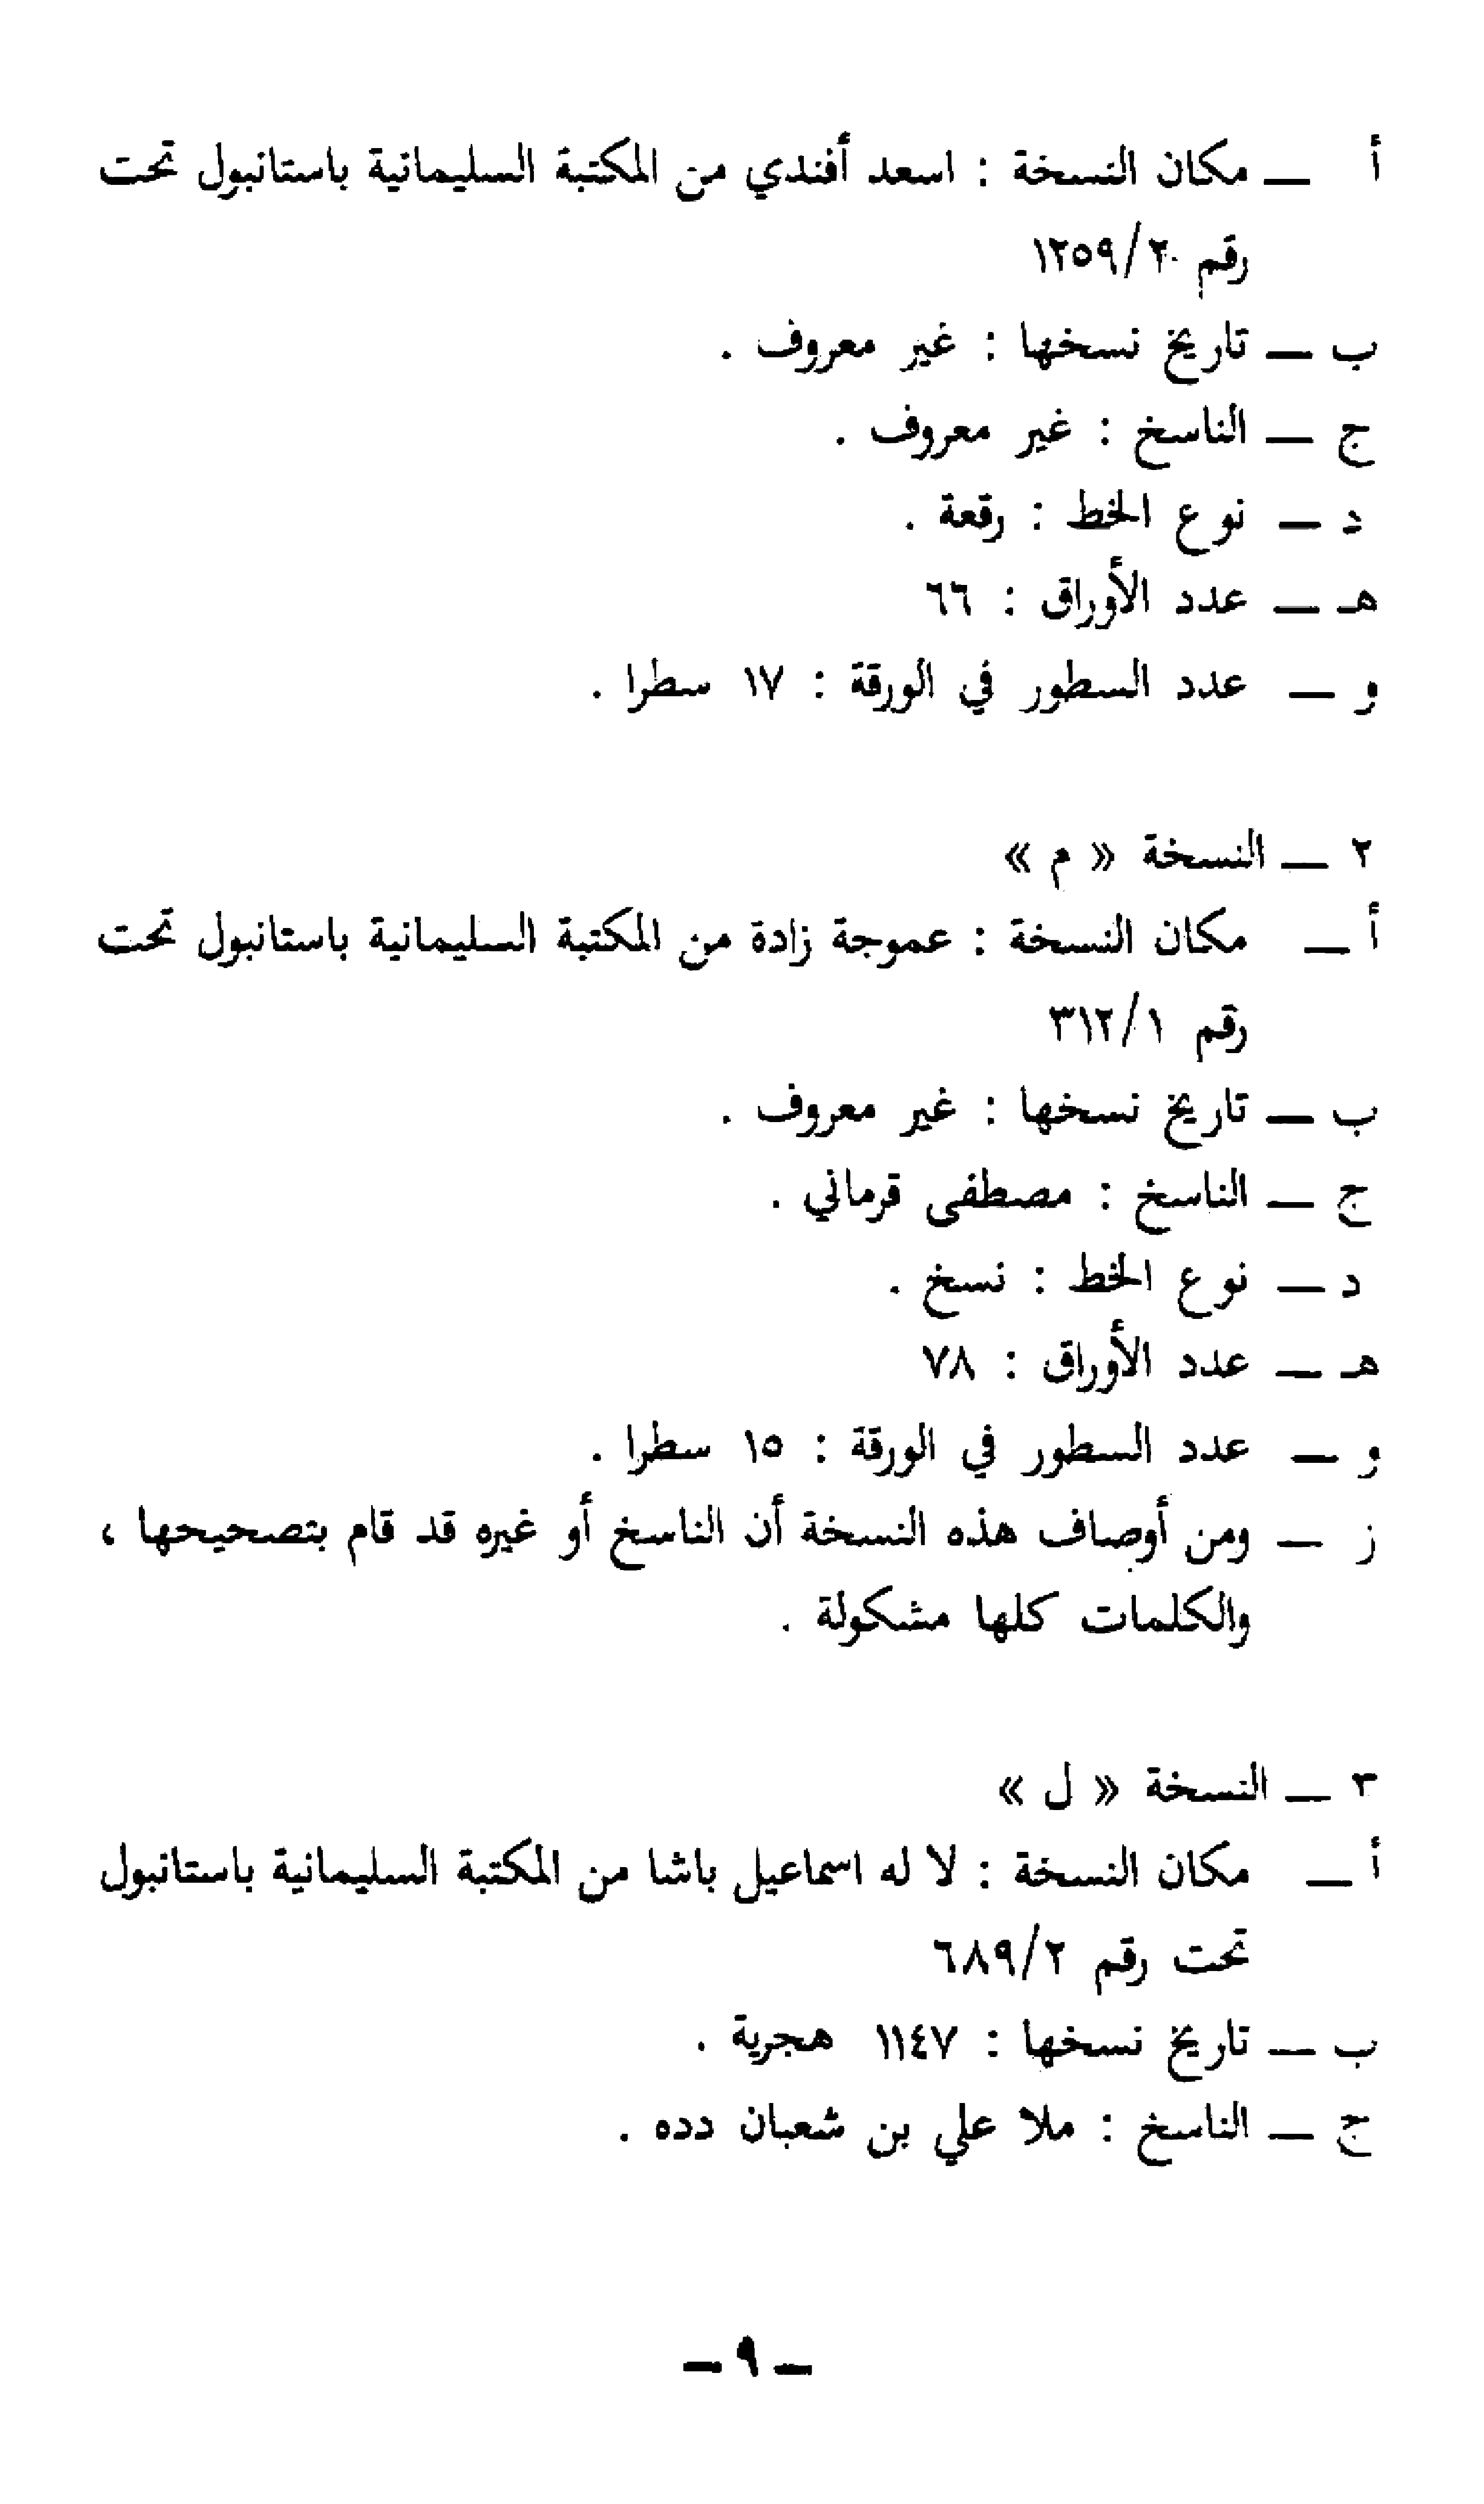 أ — مكان النسخة : اسعد أفندي من المكتبة السليمانية باستانبول تحت
رقم ١٢٥٩/٢٠
ب — تاريخ نسخها : غير معروف .
ج — الناسخ : غير معروف .
د — نوع الخط : رقعة .
هـ — عدد الأوراق : ٦٦
و — عدد السطور في الورقة : ١٧ سطرا .
٢ — النسخة « م »
أ — مكان النسخة : عموجة زادة من المكتبة السليمانية باستانبول تحت
رقم ٣١٢/١
ب — تاريخ نسخها : غير معروف .
ج — الناسخ : مصطفى قرماني .
د — نوع الخط : نسخ .
هـ — عدد الأوراق : ٧٨
و — عدد السطور في الورقة : ١٥ سطرا .
ز — ومن أوصاف هذه النسخة أن الناسخ أو غيره قد قام بتصحيحها ،
والكلمات كلها مشكولة .
٣ — النسخة « ل »
أ — مكان النسخة : لا له اسماعيل باشا من المكتبة السليمانية باستانبول
تحت رقم ٦٨٩/٢
ب — تاريخ نسخها : ١١٤٧ هجرية .
ج — الناسخ : ملا علي بن شعبان دده .
— ٩ —